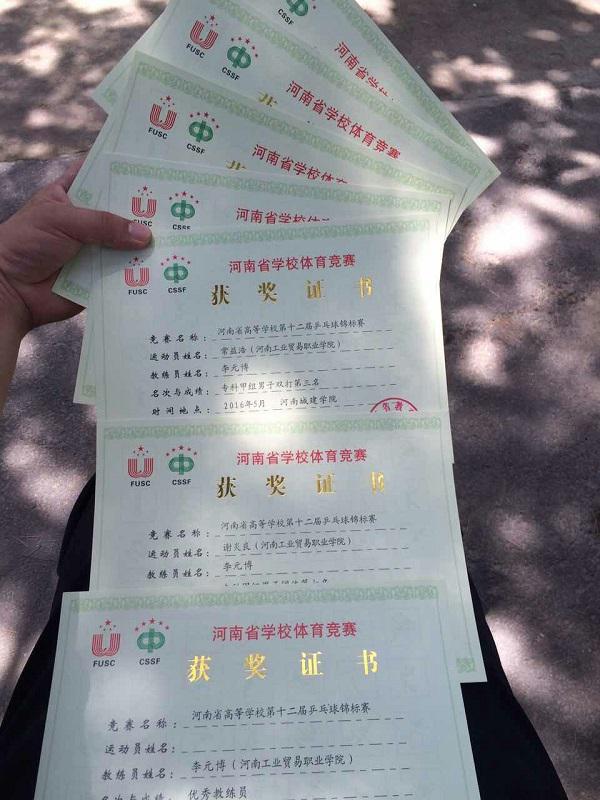 FUSC
CSSF
河南省学校体
FUSC
CSSF
河南省学校体育竞赛
获
FUSC
CSSF
河南省学校体育竞
获
FUSC
CSSF
河南省学校体育竞
FUSC
CSSF
河南省学校体育竞赛
获奖证书
竞赛名称：河南省高等学校第十二届乒乓球锦标赛
运动员姓名：常益浩（河南工业贸易职业学院）
教练员姓名：李元博
名次与成绩：专科甲组男子双打第三名
时间地点：2016年5月 河南城建学院
FUSC
CSSF
河南省学校体育竞赛
获奖证书
竞赛名称：河南省高等学校第十二届乒乓球锦标赛
运动员姓名：谢炎良（河南工业贸易职业学院）
教练员姓名：李元博
FUSC
CSSF
河南省学校体育竞赛
获奖证书
竞赛名称：河南省高等学校第十二届乒乓球锦标赛
运动员姓名：
教练员姓名：李元博（河南工业贸易职业学院）
名次与成绩：优秀教练员